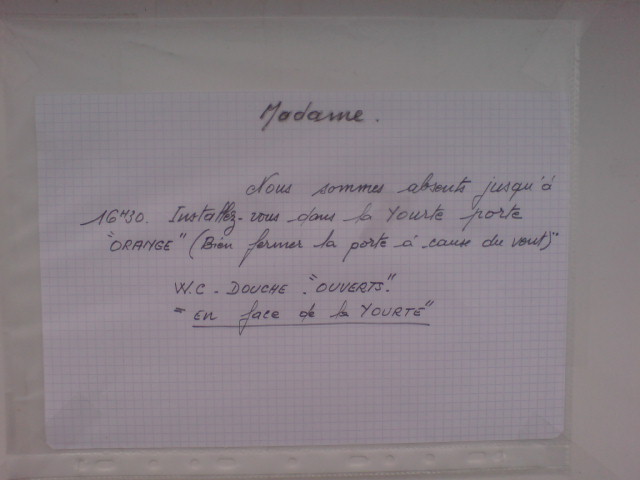 Madame.
Nous sommes absents jusqu'à
16H30. Installez-vous dans la Yourte porte
"ORANGE" (Bien fermer la porte à cause du vent)"
W.C - DOUCHE "OUVERTS"
= en face de la YOURTE"